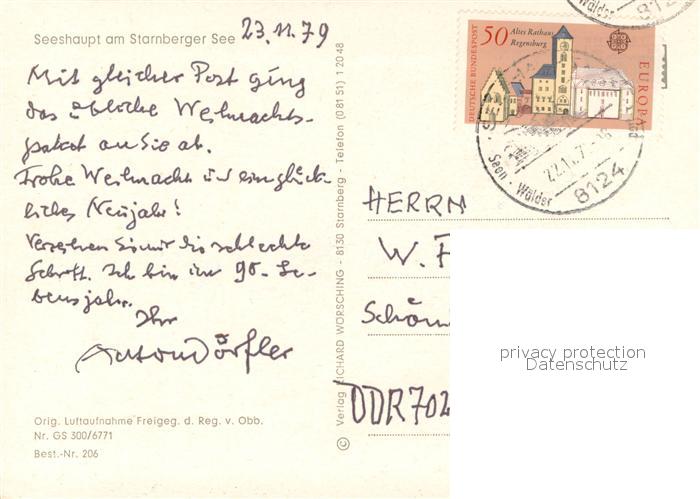 Seeshaupt am Starnberger See
23.11.79
Mit gleicher Post ging
das übliche Weihnachts-
paket an Sie ab.
Frohe Weihnacht und ein glück-
liches Neujahr!
Verzeihen Sie mir die schlechte
Schrift. Ich bin im 90. Le-
bensjahr.
Ihr
Anton Dörfler
Orig. Luftaufnahme Freigeg. d. Reg. v. Obb.
Nr. GS 300/6771
Best.-Nr. 206
© Verlag RICHARD WÖRSCHING - 8130 Starnberg - Telefon (081 51) 1 20 48
50 Altes Rathaus
Regensburg
DEUTSCHE BUNDESPOST
EUROPA
Seen - Wälder
8124
Wälder
812
HERRN
W. F
DDR 702
privacy protection
Datenschutz